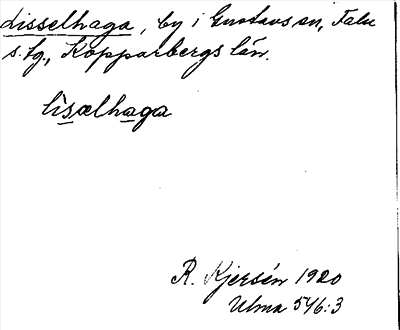 Lisselhaga, by i Gustavs sn, Falu
s. tg., Kopparbergs län.
lìsælhaga
R. Kjersén 1920
Ulma 546:3